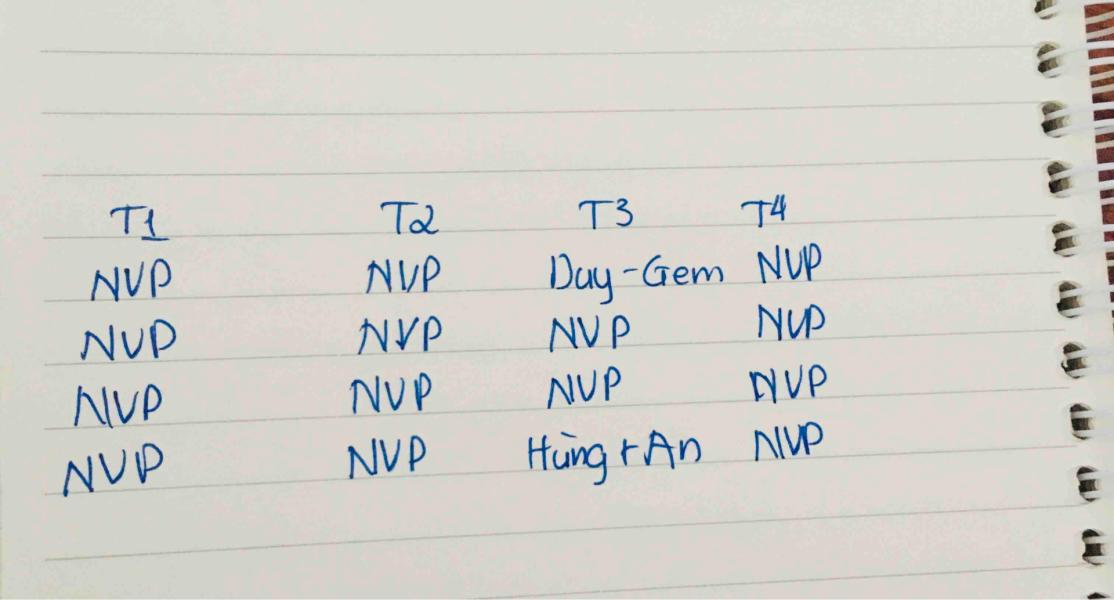 T1 T2 T3 T4
NVP NVP Duy-Gem NVP
NVP NVP NVP NVP
NVP NVP NVP NVP
NVP NVP Hùng + An NVP